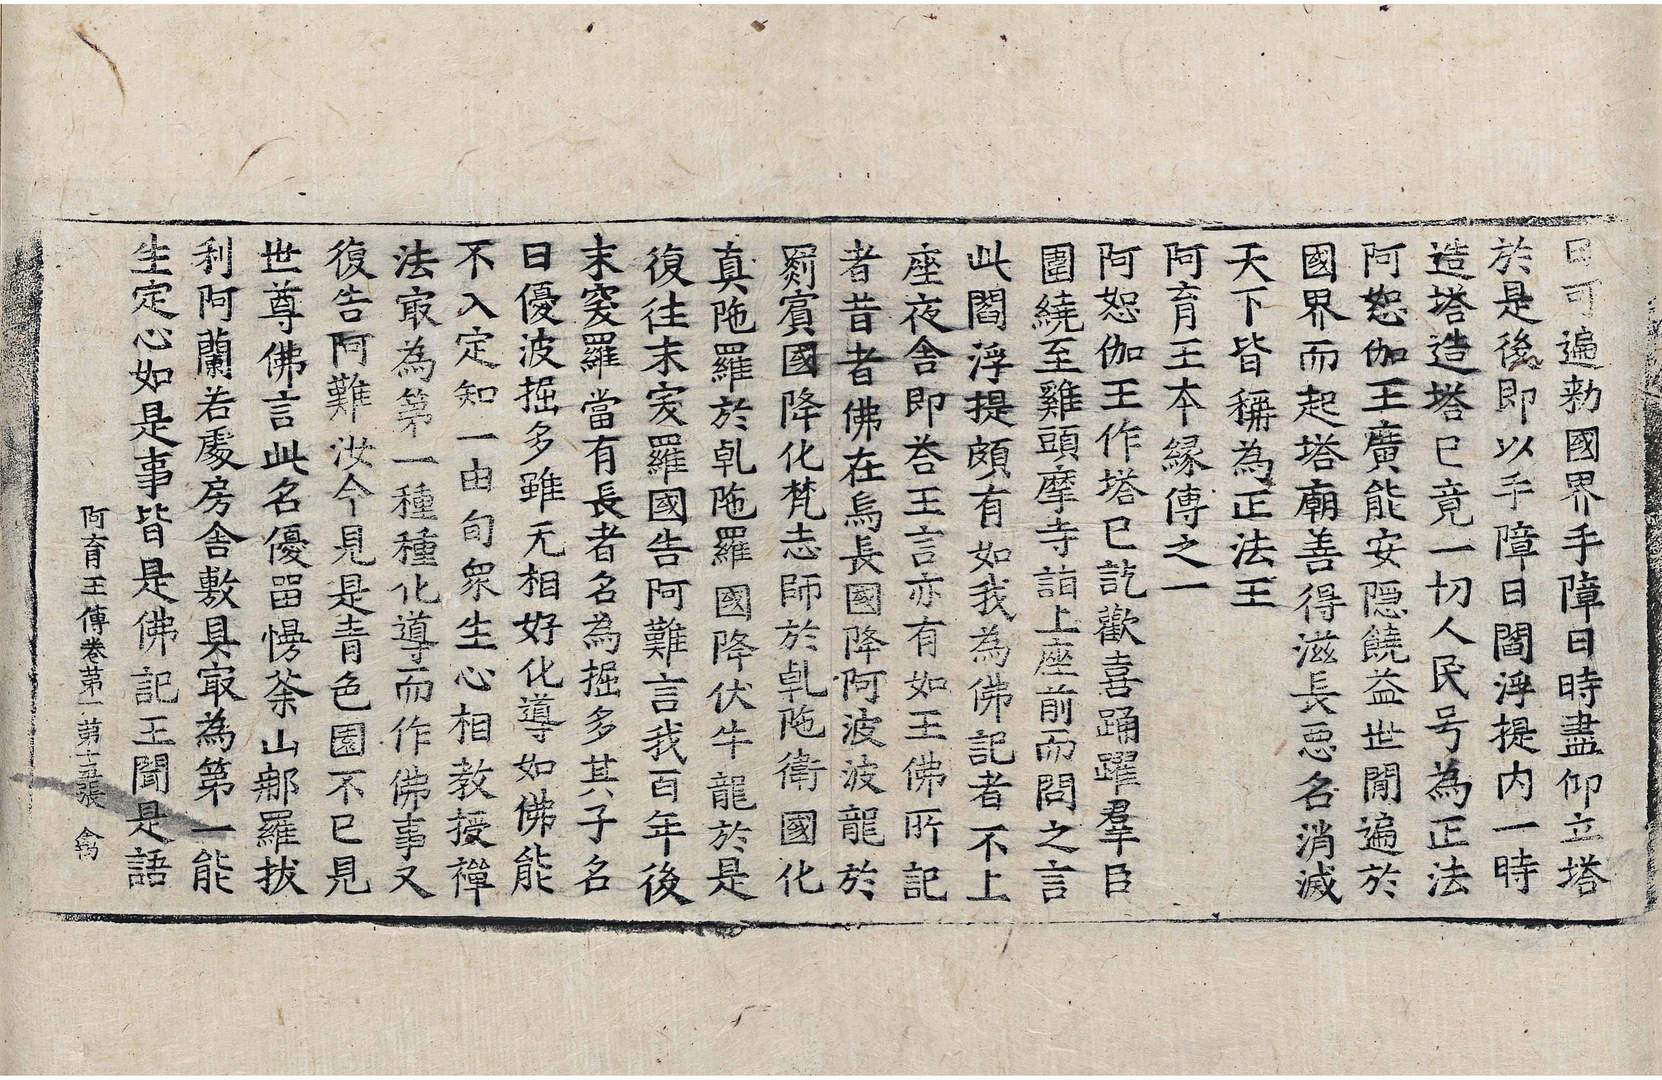 日可遍勑國界手障日時盡仰立塔
於是後即以手障日閻浮提内一時
造塔造塔已竟一切人民号為正法
阿恕伽王廣能安隠饒益世間遍於
國界而起塔廟善得滋長惡名消滅
天下皆稱為正法王
阿育王本縁傳之一
阿恕伽王作塔已訖歡喜踊躍羣臣
圍繞至雞頭摩寺詣上座前而問之言
此閻浮提頗有如我為佛記者不上
座夜舍即荅王言亦有如王佛所記
者昔者佛在烏長國降阿波波龍於
罽賓國降化梵志師於乹陁衛國化
真陁羅於乹陁羅國降伏牛龍於是
復往末突羅國告阿難言我百年後
末突羅當有長者名為掘多其子名
曰優波掘多雖无相好化導如佛能
不入定知一由旬衆生心相教授禪
法冣為第一種種化導而作佛事又
復告阿難汝今見是青色園不已見
世尊佛言此名優留慢荼山那羅拔
利阿蘭若處房舍敷具冣為第一能
生定心如是事皆是佛記王聞是語
阿育王傳卷第一 第十五張 禽